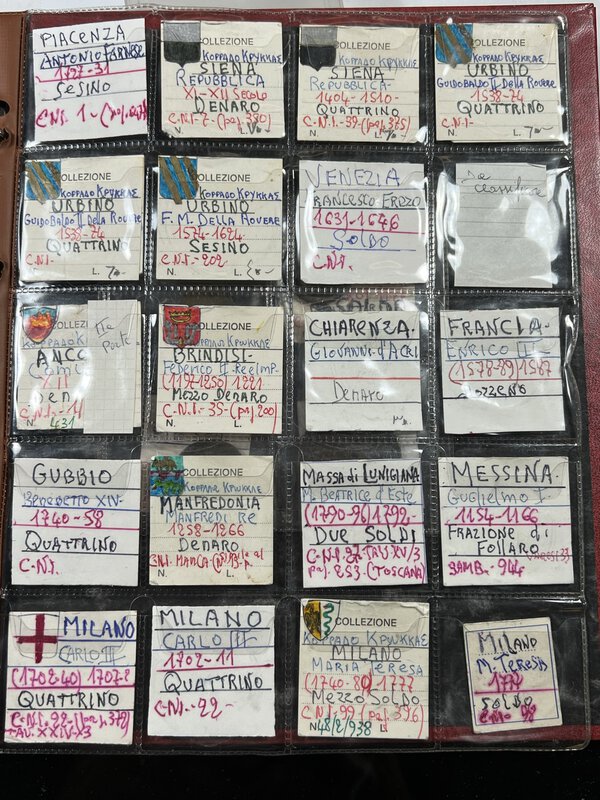 PIACENZA
ANTONIO FARNESE
1727-31
SESINO
C.N.I. 1-
COLLEZIONE
SIENA
REPUBBLICA
XI-XII SECOLO
DENARO
C.N.I-7-(pag.330)
N. L.
COLLEZIONE
SIENA
REPUBBLICA-
1404-1510-
QUATTRINO
C.N.I.-39-(pag.375)
N. L.
COLLEZIONE
ΚΟΡΡΑΔΟ ΚΡΥΚΚΑΣ
URBINO
GUIDOBALDO II DELLA ROVERE
1538-74
QUATTRINO
C.N.I-
N. L.
COLLEZIONE
ΚΟΡΡΑΔΟ ΚΡΥΚΚΑΣ
URBINO
GUIDOBALDO II DELLA ROVERE
1538-74
QUATTRINO
C.N.I-
N. L.
COLLEZIONE
ΚΟΡΡΑΔΟ ΚΡΥΚΚΑΣ
URBINO
F. M. DELLA ROVERE
1574-1624
SESINO
C.N.I-202
N. L.
VENEZIA
FRANCESCO ERIZZO
1631-1646
SOLDO
C.N.I.
Da
classificare
COLLEZI
ANCO
XII
DEN
COLLEZIONE
BRINDISI-
Federico II-Re e Imp-
(1197-1250) 1221
MEZZO DENARO
C.N.I.-35-(pag.200)
N. L.
CHIARENZA-
GIOVANNI d'ACRI
DENARO
FRANCIA-
ENRICO III
(1578-89) 1587
GUBBIO
BENEDETTO XIV-
1740-58
QUATTRINO
C.N.I.
COLLEZIONE
ΚΟΡΡΑΔΟ ΚΡΥΚΚΑΣ
MANFREDONIA
MANFREDI RE
1258-1266
DENARO
MASSA di LUNIGIANA
M. BEATRICE d'ESTE
(1790-96) 1792-
DUE SOLDI
C.N.I-27-TAV. XV/3
pag. 253-(TOSCANA)
MESSINA-
GUGLIELMO I
1154-1166
FRAZIONE di
FOLLARO
SAMB.-944
MILANO
CARLO III
(1702-40) 1707-?
QUATTRINO
C.N.I.-22-(pag.379)
TAV. XXIV-X3
MILANO
CARLO III
1702-11
QUATTRINO
C.N.I.-22-
COLLEZIONE
ΚΟΡΡΑΔΟ ΚΡΥΚΚΑΣ
MILANO
MARIA TERESA
(1740-80) 1777
MEZZO SOLDO
C.N.I.99 (pag.396)
N. L.
MILANO
M. TERESA
SOLDO